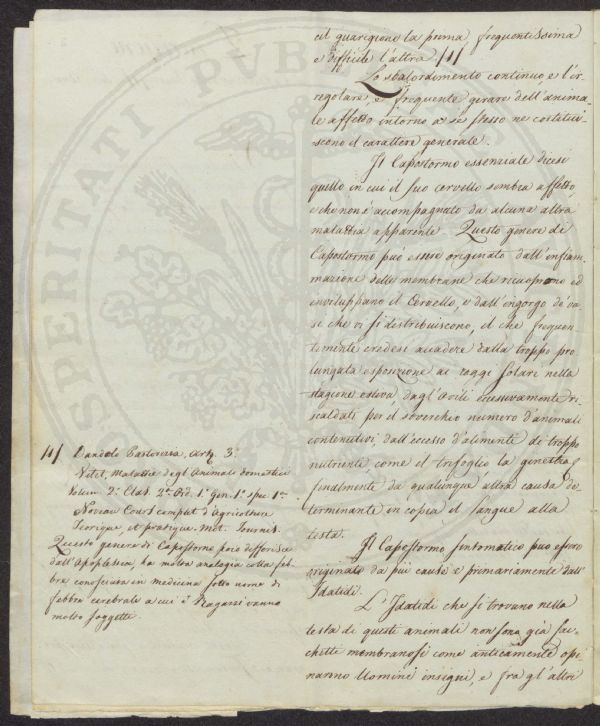 cil guarigione la prima, frequentissima
e difficile l'altra /1/
Lo sbalordimento continuo, e l'ir-
regolare, e frequente girare dell'anima-
le affetto intorno a se stesso ne costitui-
scono il carattere generale.
Il Capostormo essenziale dicesi
quello in cui il suo cervello sembra affetto,
e che non è accompagnato da alcuna altra
malattia apparente. Questo genere di
Capostormo può essere originato dall'infiam-
mazione delle membrane che ricuoprono ed
inviluppano il Cervello, o dall'engorgo de' va-
si che vi si distribuiscono, il che frequen-
temente credesi accadere dalla troppo pro-
lungata esposizione ai raggi solari nella
stagione estiva, dagl'Ovili eccessivamente ri-
scaldati per il soverchio numero d'animali
contenutivi, dall'eccesso d'alimento di troppo
nutriente come il trefoglio la ginestra,
finalmente da qualunque altra causa de-
terminante in copia il sangue alla
testa.
Il Capostormo sintomatico può essere
originato da più cause e primariamente dall'
Idatidi.
L'Idatidi che si trovano nella
testa di questi animali non sono già sac-
chette membranosi come anticamente opi-
nanno Uomini insigni, e fra gl'altri
/1/ Dandolo Pastorizia, Art. 3.
Vitet, Malattie degl'Animali domestici
Volum 2. Clas. 2. Ord. 1. Gen. 1. spe 1.
Noveau Cours complet d'Agriculture
Teorique, et pratique. Mot. Tournis.
Questo genere di Capostorno poco differisce
dall'Apoplessia, ha molta analogia colla feb-
bra conosciuta in medicina sotto nome di
febbra cerebrale a cui i Ragazzi vanno
molto soggetti.
SPERITATI PVB